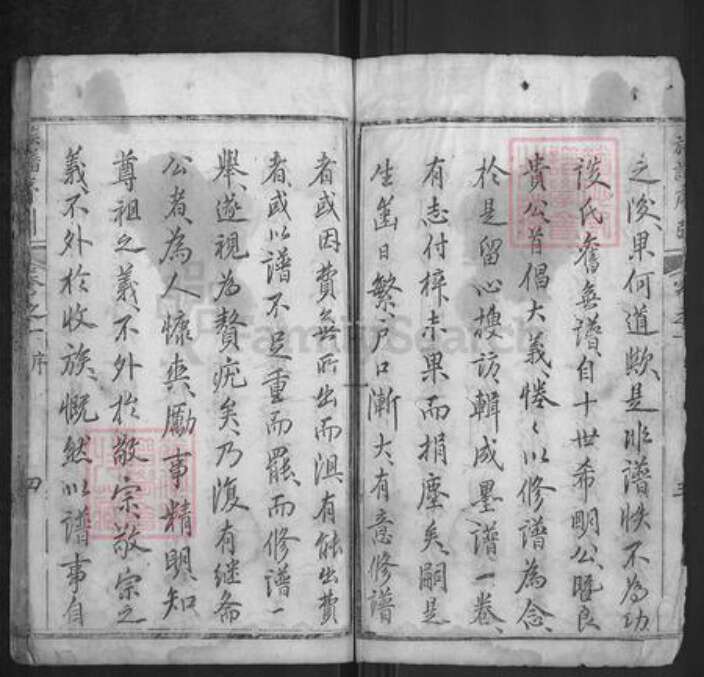 之後、果何道歟、是非譜牒不為功
談氏舊無譜、自十世希明公暨良
貴公首倡大義、惓〻以修譜為念、
於是留心搜訪、輯成墨譜一卷、
有志付梓、未果而捐塵矣、嗣是
生齒日繁、戶口漸大、有意修譜
者、或因費無所出而沮、有能出費
者、或以譜不足重而罷、而修譜一
舉、遂視為贅疣矣、乃復有継俞
公者、為人慷爽、勵事精明、知
尊祖之義、不外於敬宗、敬宗之
義、不外於收族、慨然以譜事自
序
四
FamilySearch